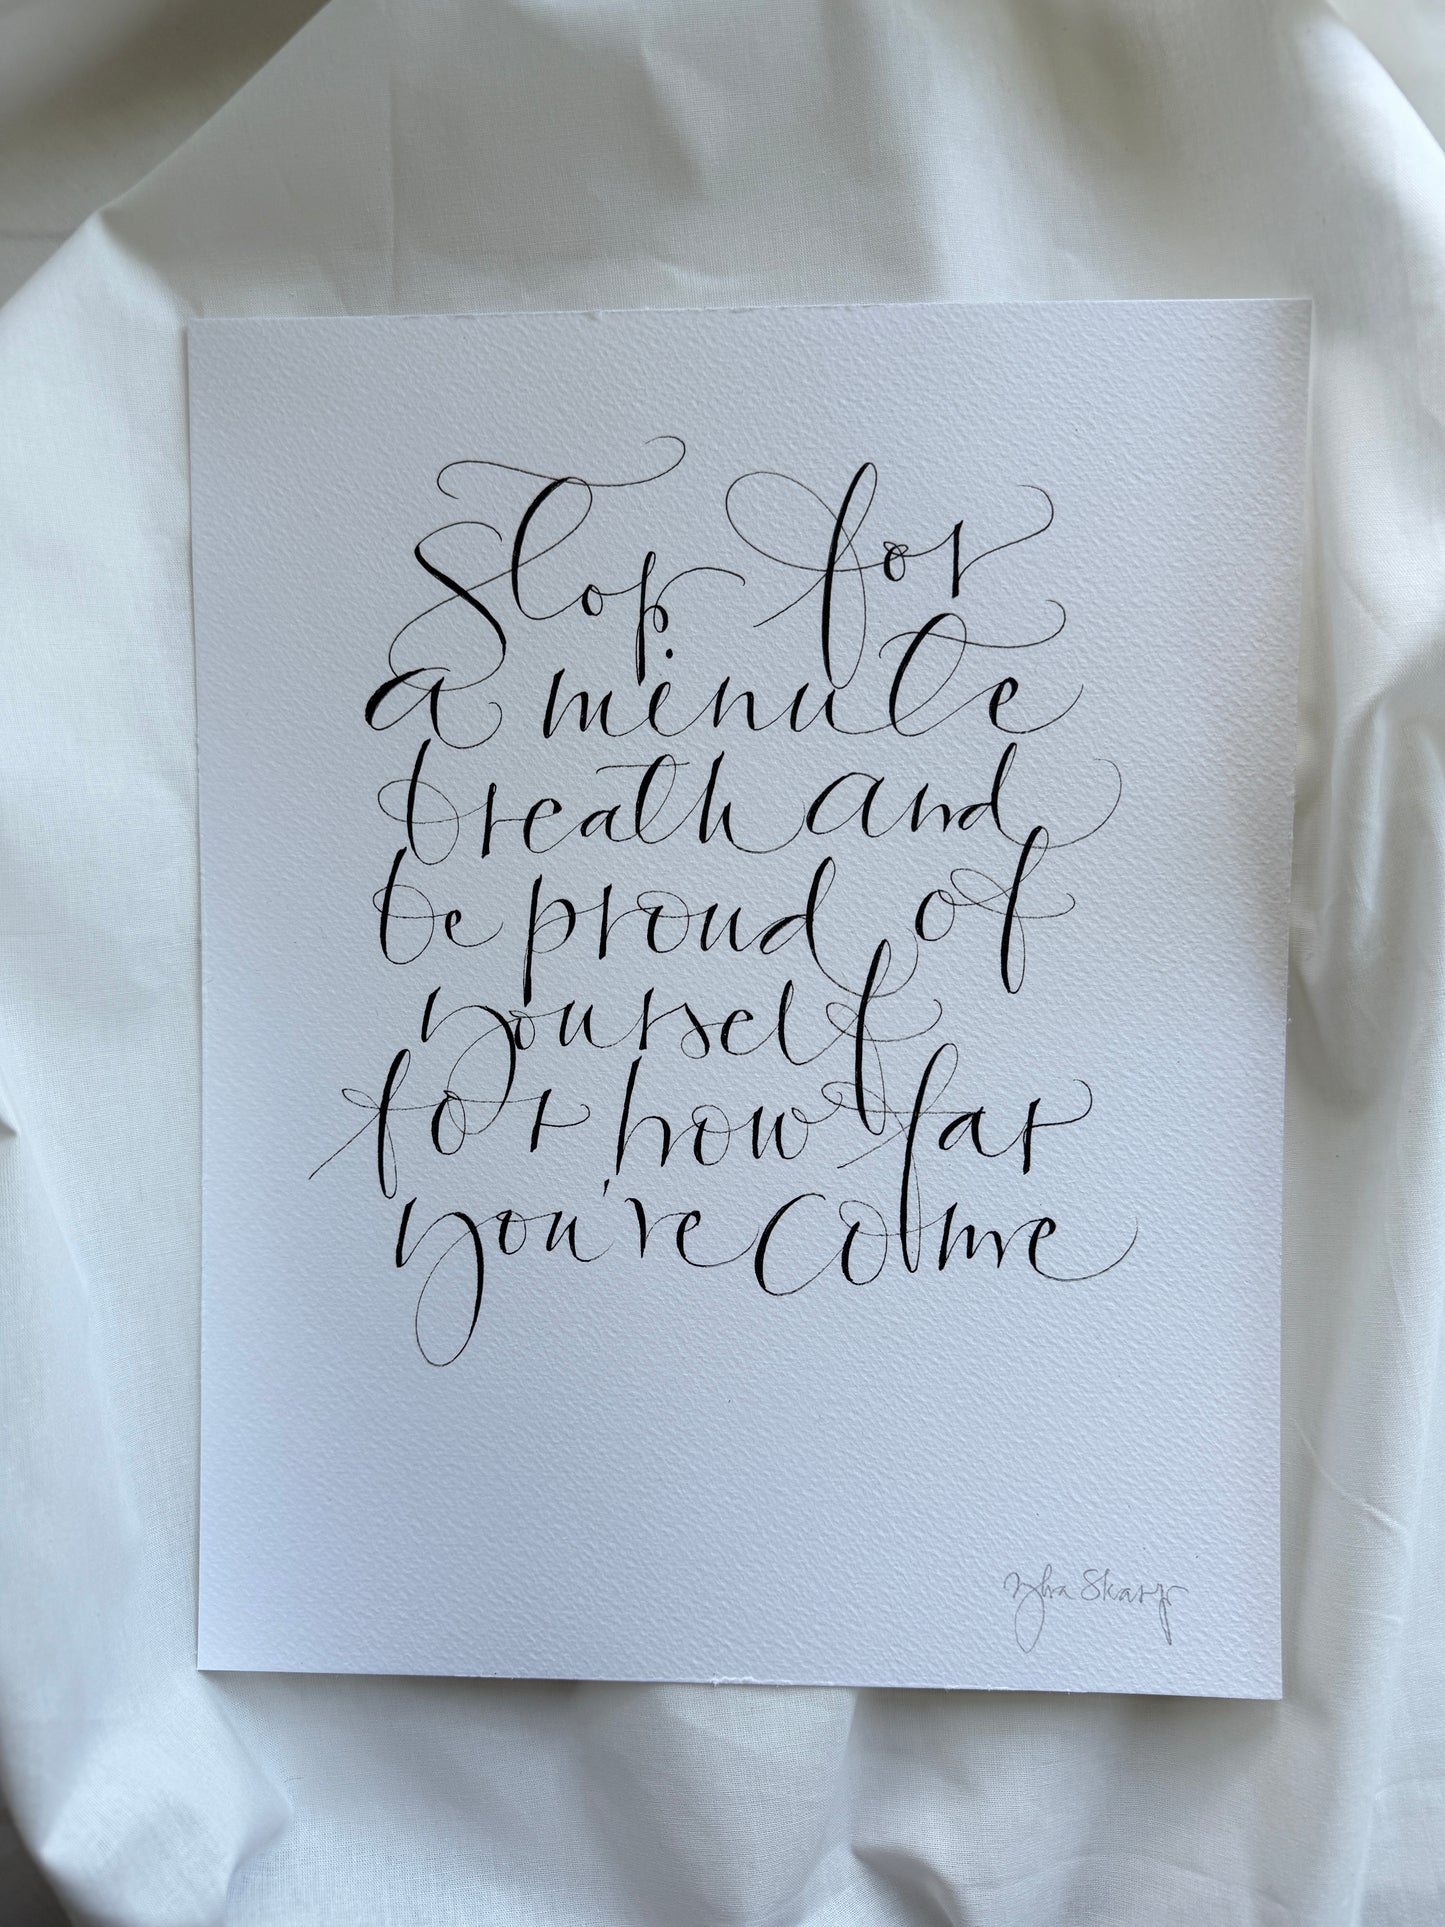 Stop for
a minute
breath and
be proud of
yourself
for how far
you're come
Ylva Skarp